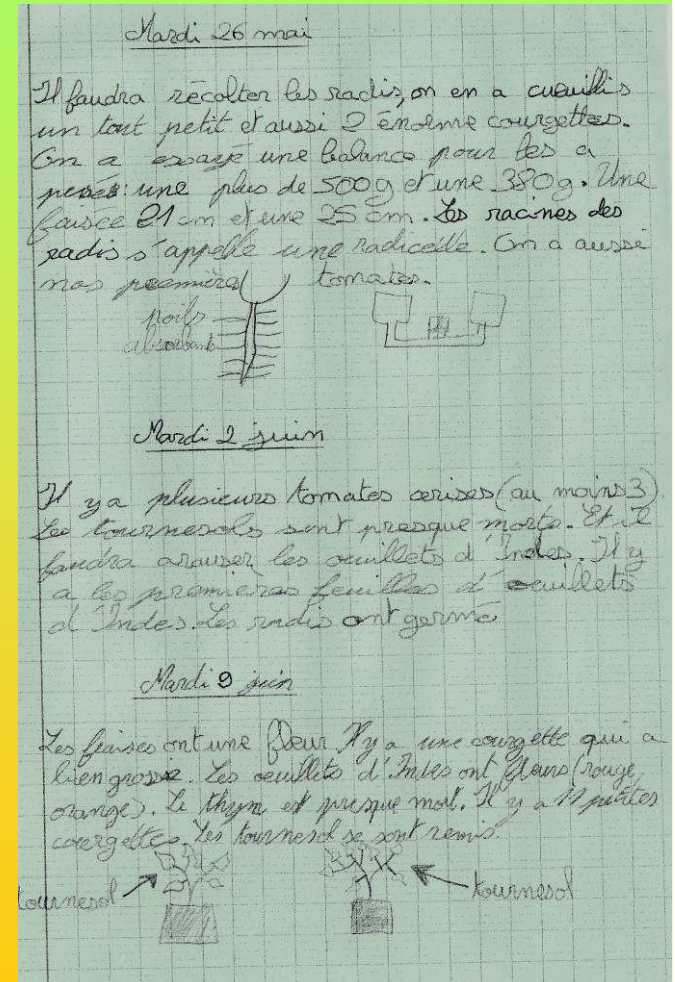 Mardi 26 mai
Il faudra récolter les radis, on en a cueuillis
un tout petit et aussi 2 énorme courgettes.
On a essayé une balance pour les a
pesés: une plus de 500g et une 380g. Une
21 cm et une 25 cm. Les racines des
radis s'appelle une radicelle. On a aussi
nos première tomates.
poils
absorbant
Mardi 2 juin
Il y a plusieurs tomates cerises (au moins 3)
Les tournesols sont presque morts. Et il
faudra arauser les oeuillets d'Indes. Il y
a les premières feuilles d'oeuillets
d'Indes. Les radis ont germé
Mardi 9 juin
Les fraises ont une fleur Il y a une courgette qui a
bien grossie. Les oeuillets d'Indes ont fleurs (rouge,
orange). Le thym est presque mort. Il y a 11 petites
courgettes. Les tournesol se sont remis.
tournesol
tournesol